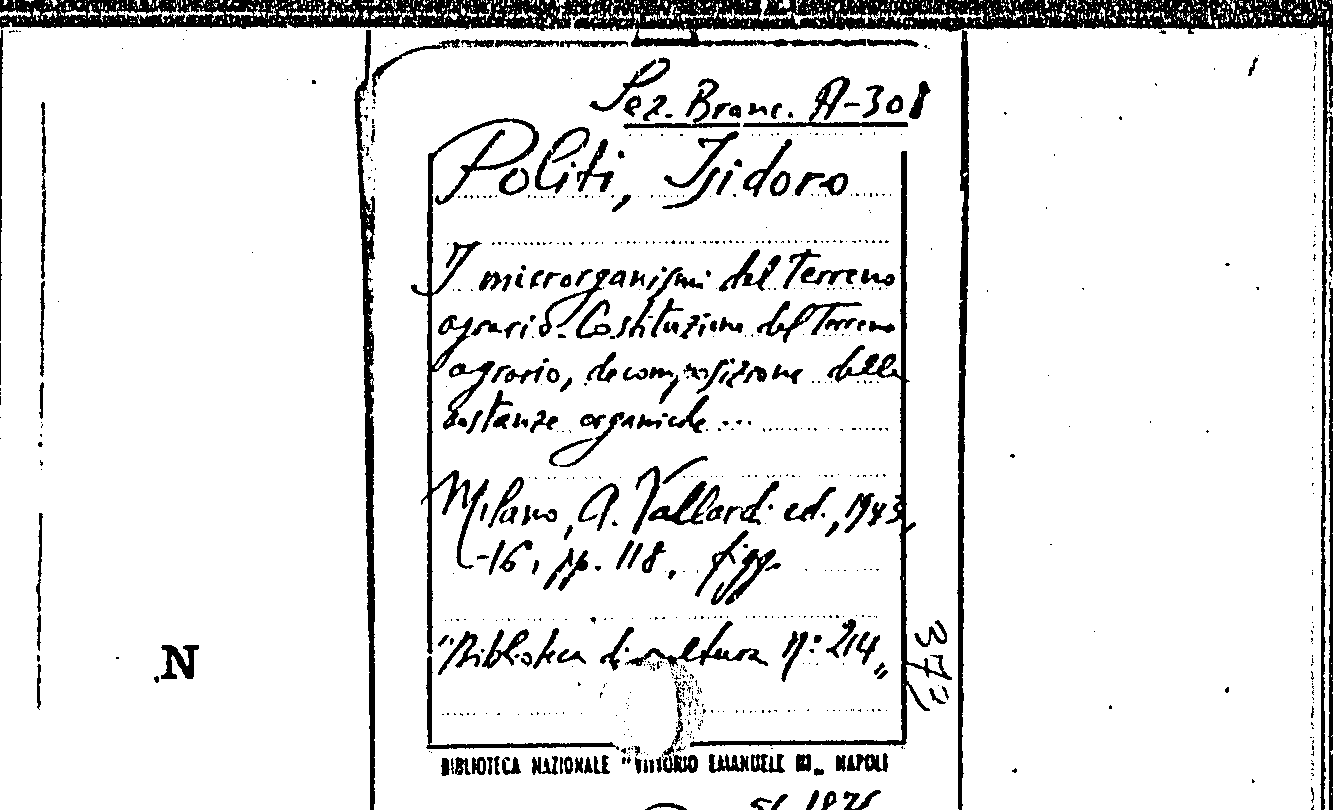 Sez. Branc. A-308
Politi, Isidoro
I microrganismi del terreno
agrario. Costituzione del Terreno
agrario, decomposizione delle
sostanze organiche ...
Milano, A. Vallardi ed., 1943,
-16, pp. 118, figg.
"Biblioteca di cultura n: 214„
372
N
BIBLIOTECA NAZIONALE "VITTORIO EMANUELE III„ NAPOLI